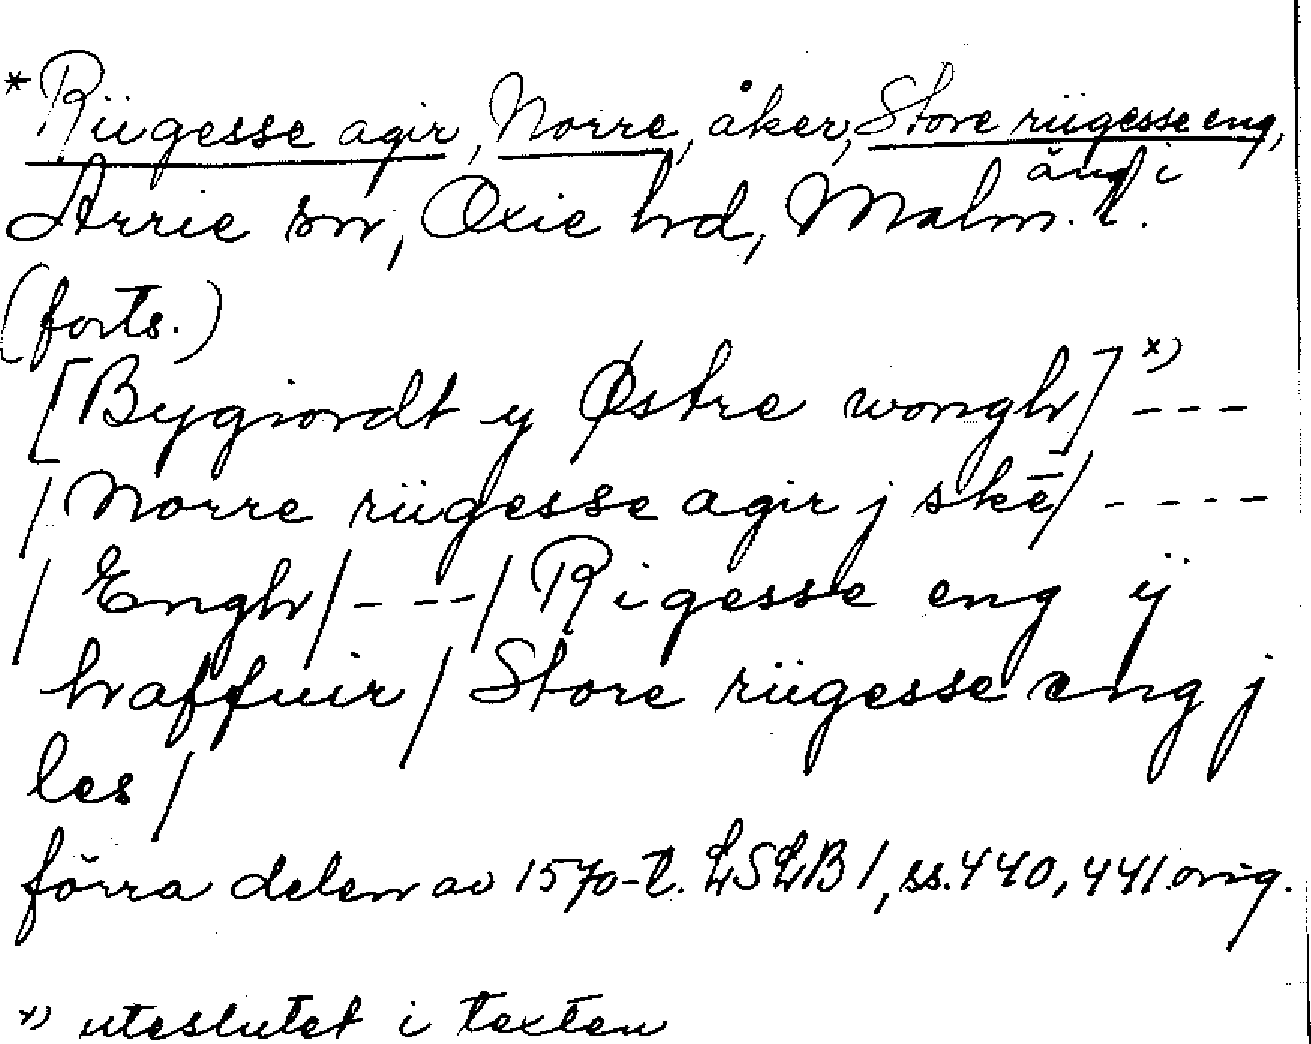 *Riigesse agir, Norre, åker, Store riigesse eng,
äng i
Arrie sn, Oxie hd, Malm. l.
(forts.)
[Bygiordt y Østre wongh]*) ---
/Norre riigesse agir j skē/ ----
/ Engh/---/Rigesse eng ÿ
haffuir/Store riigesse eng j
les/
förra delen av 1570-t. LSLB 1, ss. 440, 441 orig.
*) uteslutet i texten